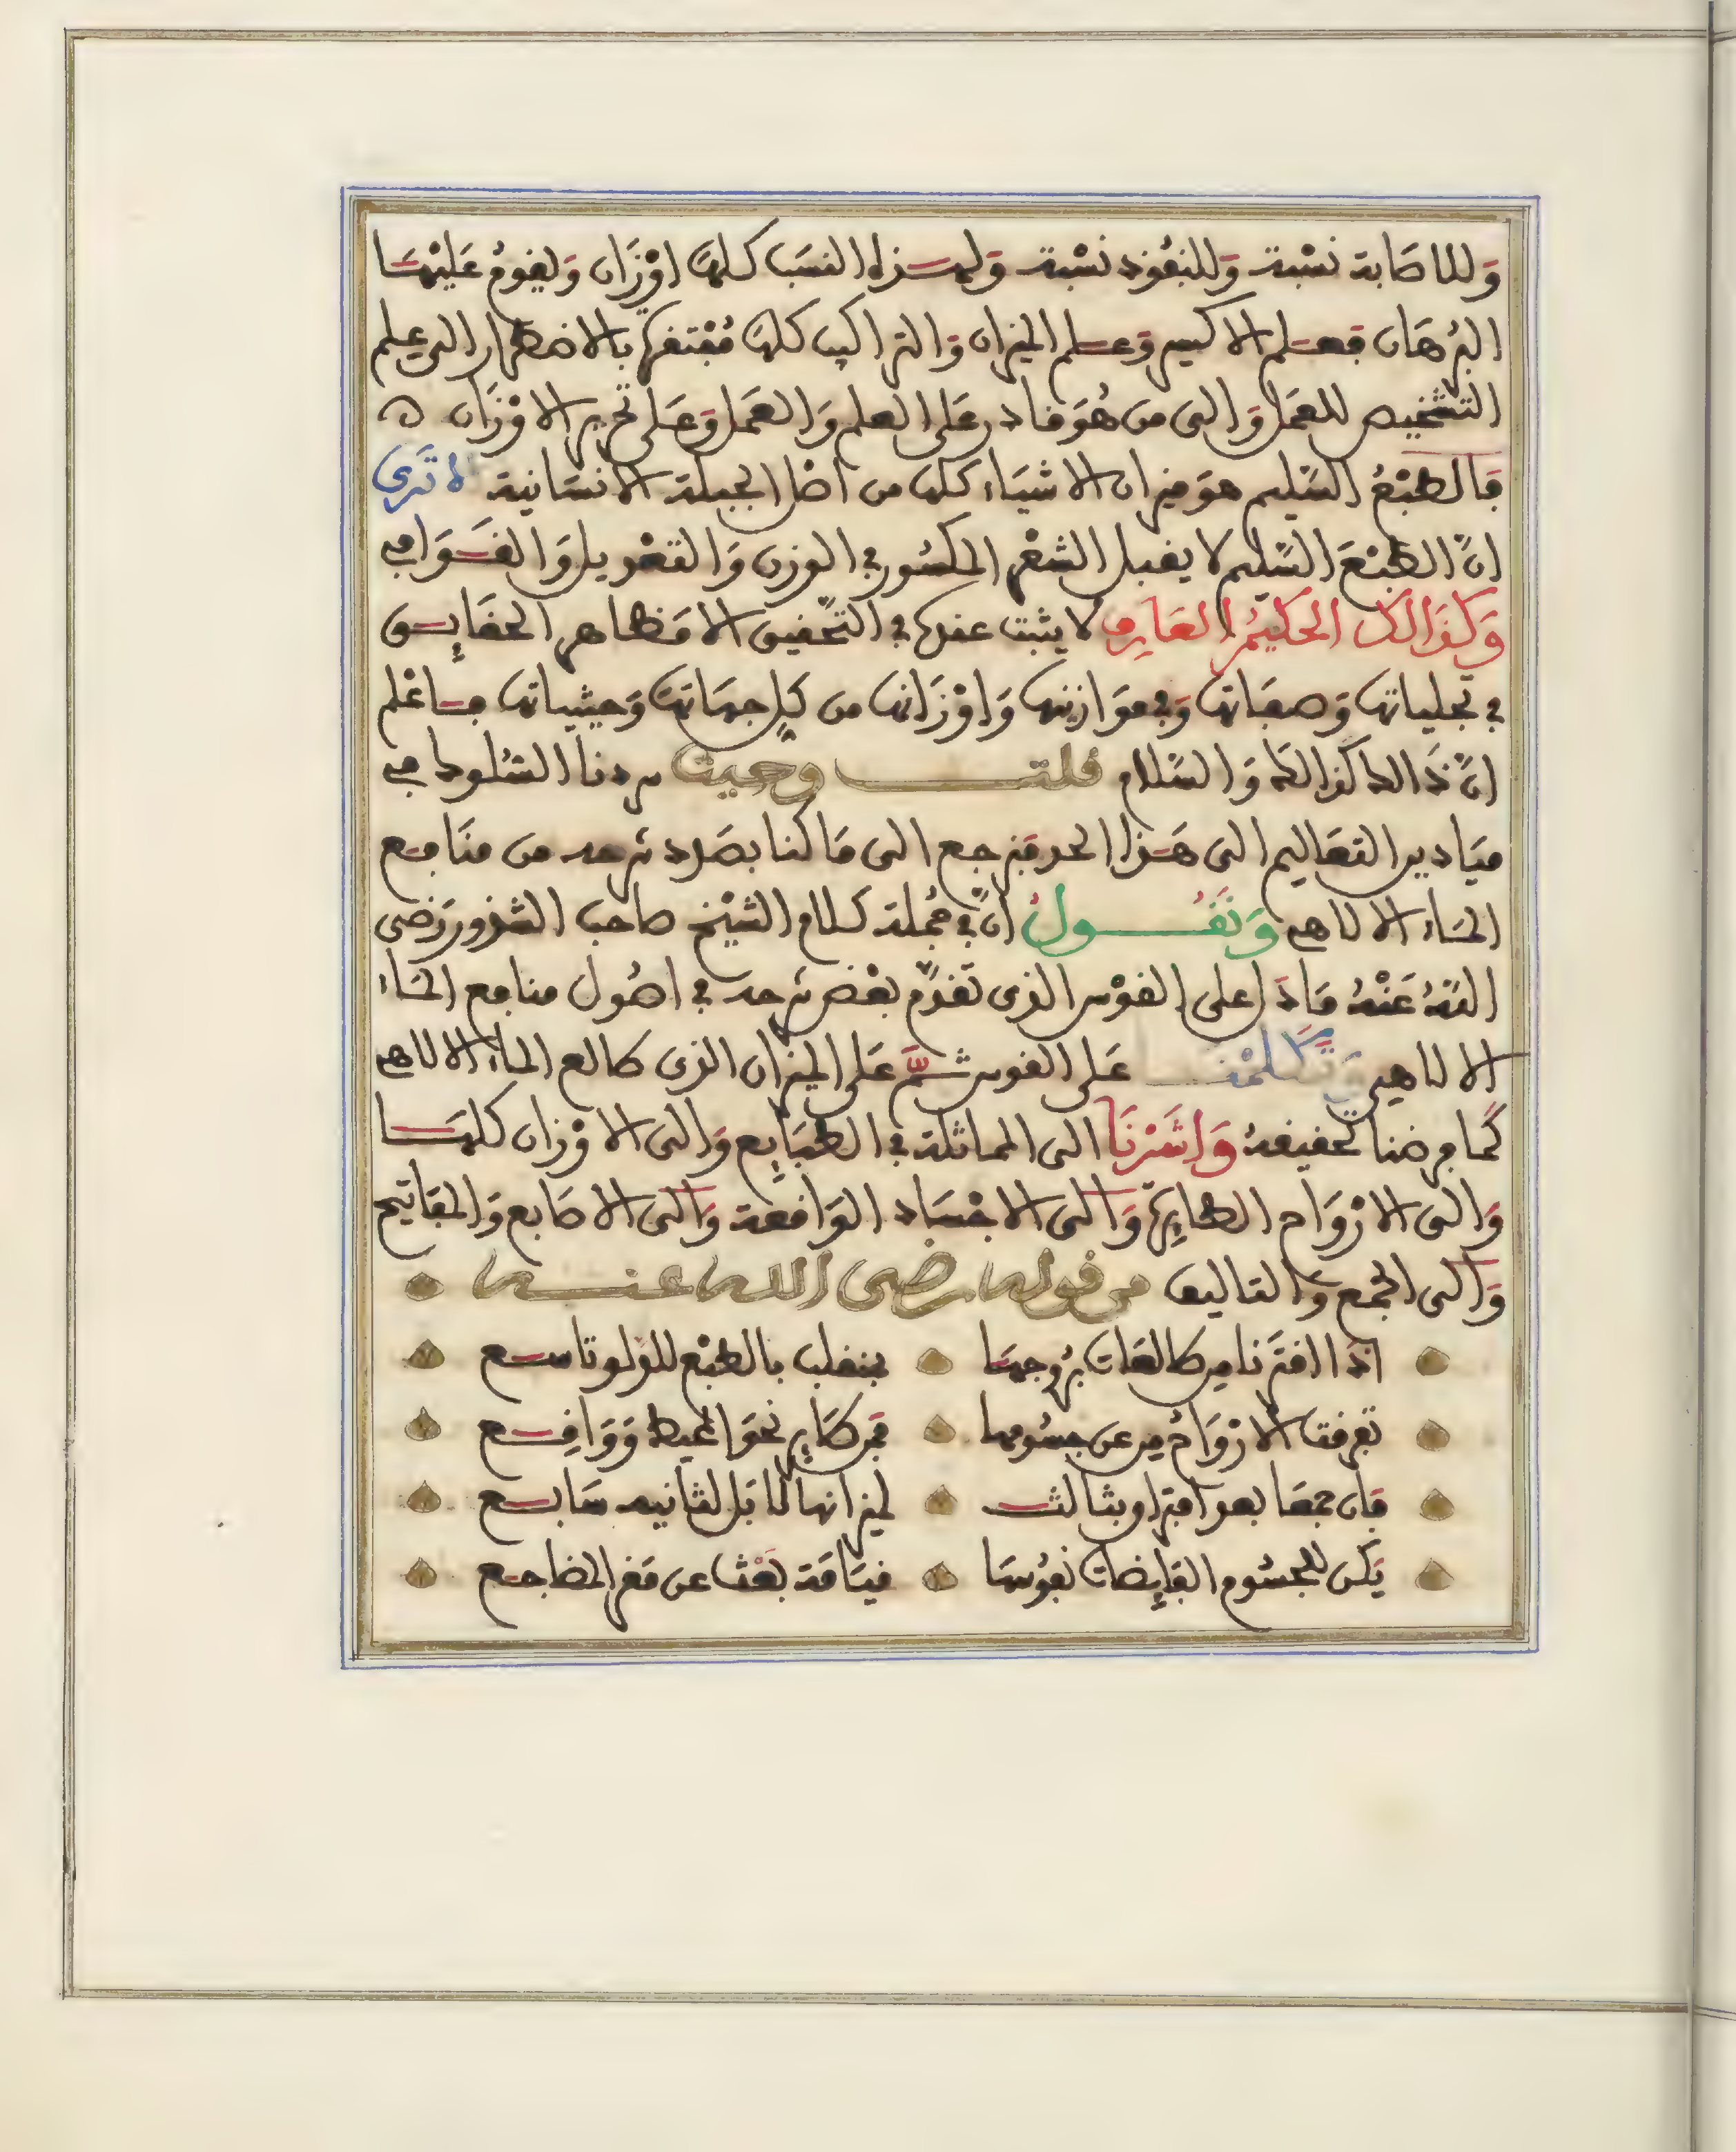 وَللاصَابة نسْبة وَللنفُوذ نسْبة وَلهذه النسَب كلهَا اوْزَان وَيقومُ عَليْهَا
البُرهَان فعلم الاكسير وَعلم الميزان وَالتراكيب كلهَا مُفْتقرة بالاضطرار الى علم
التشخيص للعمَل وَالى من هُوَ قادر عَلى العلم وَالعَمل وَعَلى تحرير الاوْزَان ه
فَالطبْعُ السَّليم هوَ ميزان الاشيَاء كلها من اصْل الجبلة الانسَانية الا تَرى
انَّ الطبْعَ السَّليم لا يقبل الشعْر المكسُور في الوزن وَالتعْويل وَالقَوَافي
وَكذَالك الحكيمُ العَارِف لا يثبت عنده في التحْقيق الا مَظاهر الحقَايِق
في تجلياتها وَصفَاتها وَفي موَازينها وَاوْزَانها من كلِ جهَاتهَا وَحيثياتها فاعْلم
انَّ ذَالك كذالك وَالسَّلام قلت وحيث سردنا السُلوك في
ميَادين التعَاليم الى هَذا الحد فنرجع الى مَا كنا بصَدد شرحه من منَافع
المَاء الالاهي وَنَقُولُ انَّ في جُملة كلام الشيْخ صاحب الشذور رَضى
اللهُ عَنْهُ مَا دَل على القوْس الذى تقدَّم بعْض شرحه في اصُول منافع المَاء
الالاهي وَتَكَلمْنَا عَلى القوس ثمَّ عَلى الميزان الذى طالع الماء الالاهي
كمَا فرضنا تحقيقهُ وَاشَرْنَا الى المماثلة في الطبَايِع وَالى الاوْزان كلهَا
وَالى الارْوَاح الطايِرة وَالى الاجْسَاد الوَاقعة وَالى الاصَابع وَالمفاتيح
وَالى الجمْع وَالتاليف من قوله رضى الله عنه
اذَا اقترَنا من طالعَات برُوجهَا ينقلب بالطبْع للولو تاسع
تفرقت الارْوَاحُ من عن جسُومها فمن طَايِر نحوَ المحيط وَوَاقِع
فان جمعَا بعد افتراق بثالث لميزانها لا بَل لثانيه سَابع
يَكن للجسُوم القَابِضات نفُوسَا قيَامَة بعْث عن مَقر المضاجع